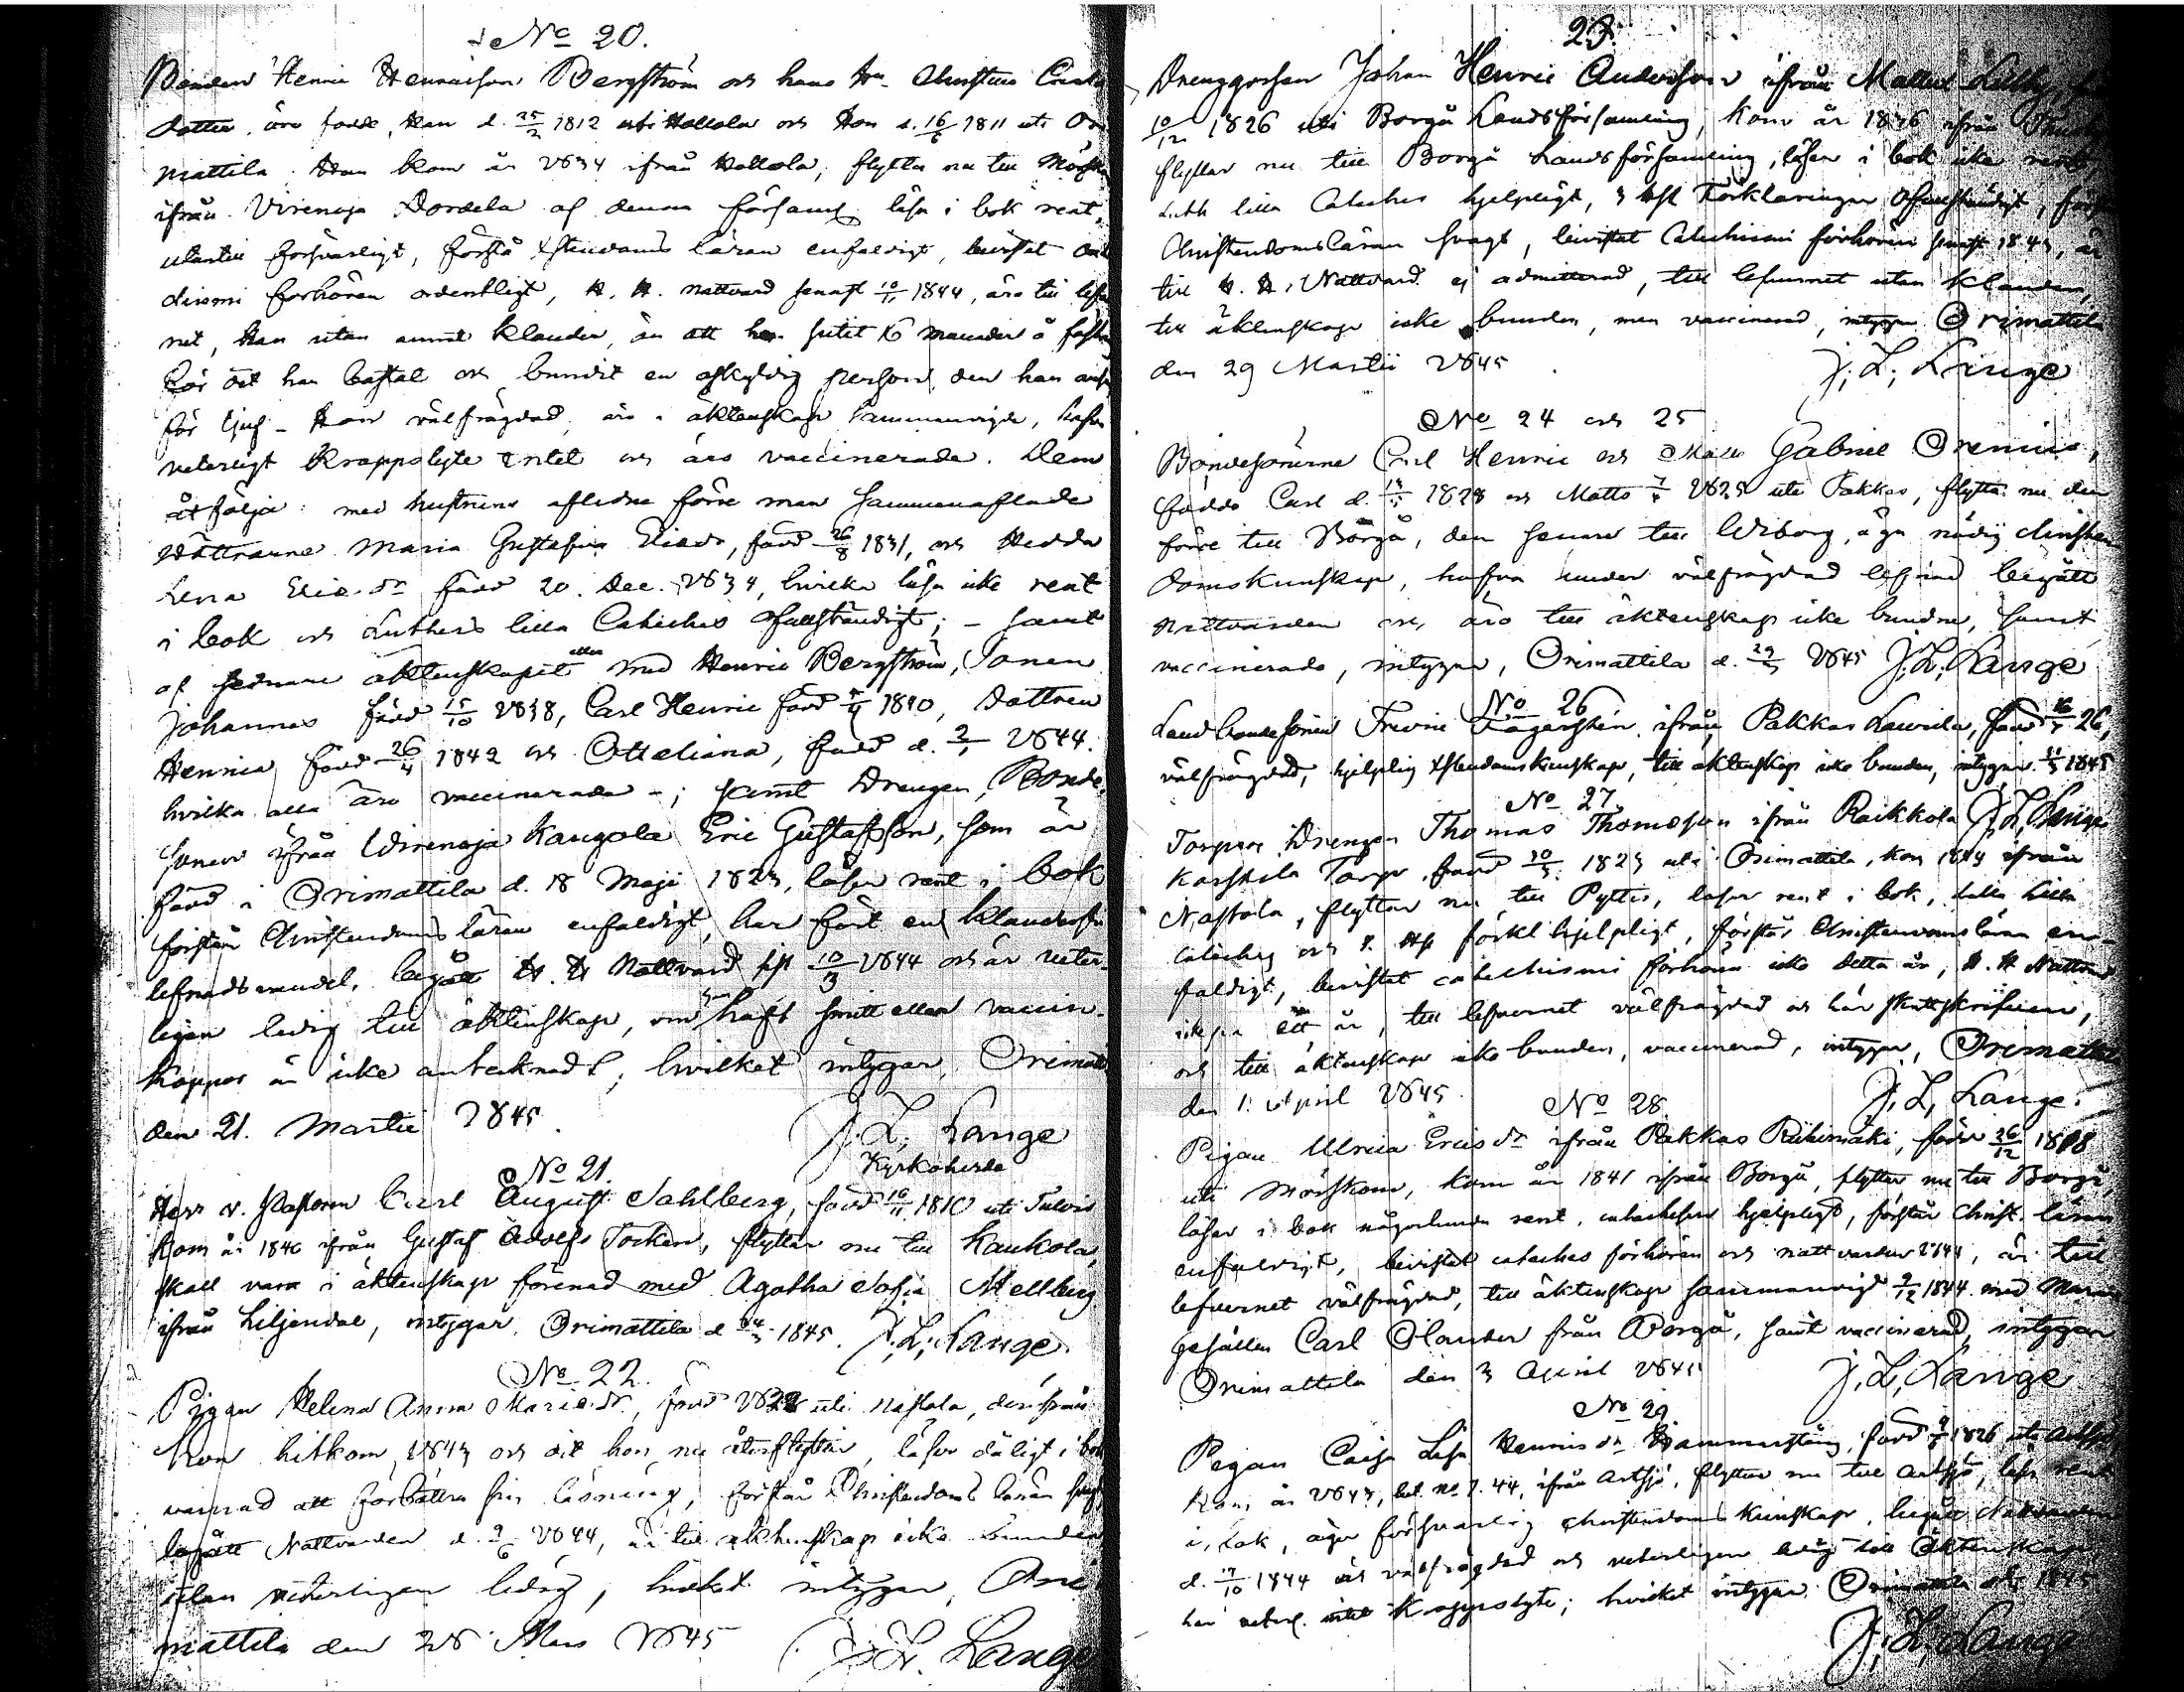 No 20.
Bonden Henric Henricsson Bergström och hans Hu. Christina Erics
dotter, äro födde, Han d. 25/2 1812 uti Hollola och Hon d. 16/6 1811 uti Ori
mattila. Han kom år 1834 ifrån Hollola, flytta nu till Mörskom
ifrån Virenoja Dordela af denna församl. läsa i bok rent,
utantill försvarligt, förstå Xstendoms läran enfaldigt, bevistat Cate
chismi förhören ordentligt, H. H. Nattvard senast 10/11 1844, äro till lefver
net, Han utan annat klander, än att han sutit 16 månader å fästn.
för det han bastat och bundit en oskyldig person, den han ansåg
för tjuf - Hon välfrägdad, äro i äktenskap sammanvigde, hafva
veterligt Kroppslyte intet och äro vaccinerade. Dem
åtfölja: med hustruns aflidne förre man sammanaflade
Döttrarne Maria Gustafva Eliædr, född 26/8 1831, och Hedda
Lena Elie dr född 20. Dec. 1834, hvilka läsa icke rent
i bok och Luthers lilla Catechis ofullständigt; - samt
af sednare äktenskapet med Henric Bergström, Sonen
Johannes född 15/10 1838, Carl Henric född 1840, Dottren
Henrica född 26/4 1842 och Ottiliana, född d. 2/1 1844.
hvilka alla äro vaccinerade -; samt Drengen, Bonde
sonen ifrån Wirenoja Kangola Eric Gustafsson, som är
född i Orimattila d. 18 Maji 1823, läser rent i bok
förstår Christendoms läran enfaldigt, har fört en klanderfri
lefnadsvandel, begått H. H. Nattvard sist 10/3 1844 och är veter-
ligen ledig till äktenskap, om han haft smitt eller vaccin-
koppor är icke antecknadt; hvilket intygar, Orimattila
den 21. Martii 1845.
J. L. Lange
Kyrkoherde
No 21.
Herr v. Pastoren Carl August Sahlberg, född 16/11 1810 uti Sulvis
kom år 1840 ifrån Gustaf Adolfs Socken, flyttar nu till Kaukola,
skall vara i äktenskap förenad med Agatha Sofia Mellberg
ifrån Liljendal, intygar. Orimattila d 24/3 1845. J. L. Lange
No 22.
Pigan Helena Anna Mariæ dr, född uti Nastola, derifrån
hon hitkom 1843 och dit hon nu återflyttar, läser dåligt i bok
varnad att förbättra sin läsning, förstår Christendoms läran svagt
begått Nattvarden d. 2/6 1844, är till äktenskap icke bunden
utan veterligen ledig, hvilket intygar, Ori
mattila den 28 Mars 1845
J. L. Lange
23.
Drenggossen Johan Henric Andersson ifrån Mallus Lillby, född
10/12 1826 uti Borgå Landsförsamling, kom år 1836 ifrån
flyttar nu till Borgå Landsförsamling, läser i bok icke rent,
Luth lilla Cateches hjelpligt, Förklaringen ofullständigt, förstår
Christendomsläran svagt, bevistat Catechismi förhören senast 1843, är
till H. H. Nattvard ej admitterad, till lefvernet utan klander,
till äktenskap icke bunden, men vaccinerad, intygar Orimattila
den 29 Martii 1845
J. L. Lange
No 24 och 25
Bondesönerne Carl Henric och Matts Gabriel Orenius,
födde Carl d. 1828 och Matts 1825 uti Pakkas, flytta nu den
förre till Borgå, den senare till Wiborg, äga nödig Christen
domskunskap, hafva under välfrägdad lefnad begått
Nattvarden och äro till äktenskap icke bundne, samt
vaccinerade, intygar, Orimattila d. 29/3 1845 J. L. Lange
No 26
Landbondesonen Fagersten ifrån Pakkas Laurila, född 26,
välfrägdad, hjelplig Xstendomskunskap, till äktenskap icke bunden, intygar 1845
J. L. Lange
No 27.
Torpare Drengen Thomas Thomasson ifrån Raikkola
Torp, född 1823 uti Orimattila, kom ifrån
Nastola, flyttar nu till Pyttis, läser rent i bok, lilla
Cateches och förkl hjelpligt, förstår Christendomsläran en-
faldigt, bevistat catechismi förhören icke detta år, H. H. Nattvard
icke på ett år, till lefvernet välfrägdad och här skattskrifven,
och till äktenskap icke bunden, vaccinerad, intygar, Orimattila
den 1. April 1845.
J. L. Lange.
No 28.
Pigan Ulrica Erics dr ifrån Pakkas Riihimäki, född 26/12 1818
uti Mörskom, kom år 1841 ifrån Borgå, flyttar nu till Borgå,
läser i bok någorlunda rent, catechesen hjelpligt, förstår Christ. läran
enfaldigt, bevistat cateches förhören och nattvarden 1844, är till
lefvernet välfrägdad, till äktenskap sammanvigd 2/12 1844 med
gesällen Carl Olander från Borgå, samt vaccinerad, intygar
Orimattila den 3 April 1845
J. L. Lange
No 29
Pigan Caisa Lisa Henrics dr Hammarstång, född 1826 uti Artsjö
kom år 1843, bet. No 7. 44, ifrån Artsjö, flyttar nu till Artsjö, läser rent
i bok, äger försvarlig Christendoms kunskap, begått Nattvarden
d. 17/10 1844 är välfrägdad och veterligen ledig till äktenskap,
har veterl. intet Kroppslyte; hvilket intygar. Orimattila 1845
J. L. Lange